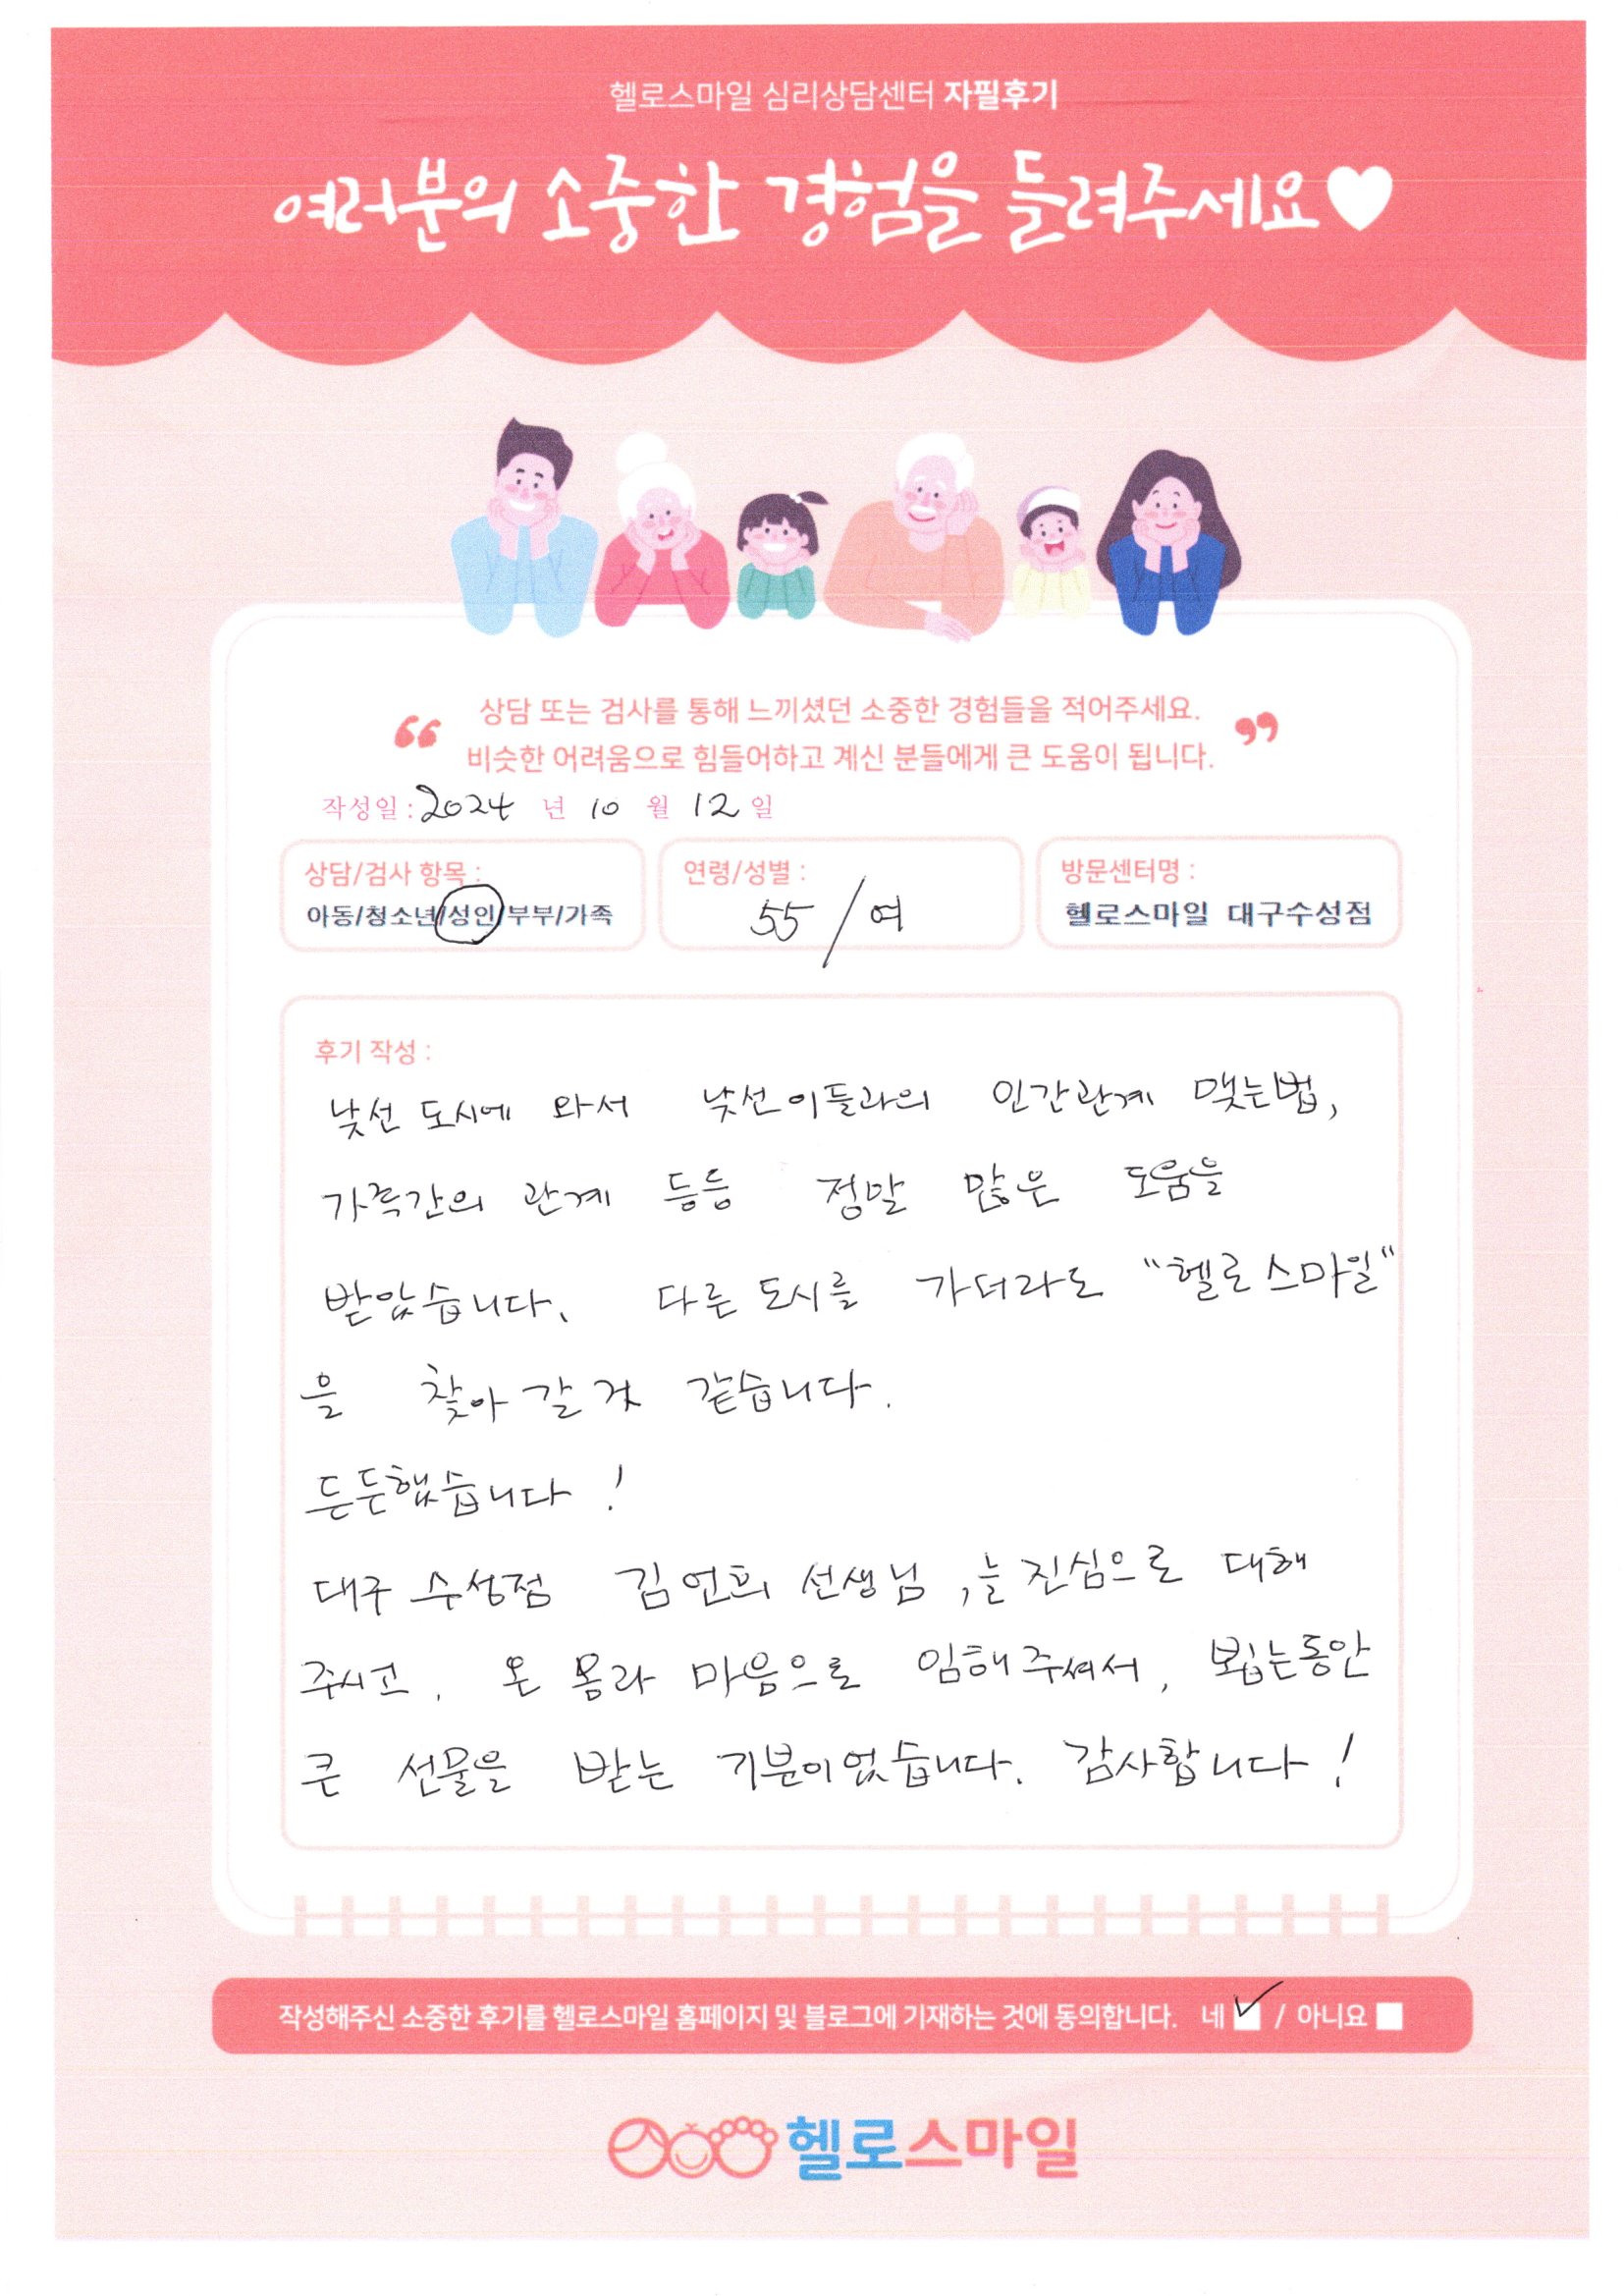 헬로스마일 심리상담센터 자필후기
여러분의 소중한 경험을 들려주세요♥
“ 상담 또는 검사를 통해 느끼셨던 소중한 경험들을 적어주세요. ”
비슷한 어려움으로 힘들어하고 계신 분들에게 큰 도움이 됩니다.
작성일: 2024 년 10 월 12 일
상담/검사 항목 :
아동/청소년/성인/부부/가족
연령/성별 :
55 / 여
방문센터명 :
헬로스마일 대구수성점
후기 작성 :
낯선 도시에 와서 낯선이들과의 인간관계 맺는법,
가족간의 관계 등등 정말 많은 도움을
받았습니다. 다른 도시를 가더라도 "헬로스마일"
을 찾아 갈 것 같습니다.
든든했습니다 !
대구 수성점 김연희 선생님, 늘 진심으로 대해
주시고, 온 몸과 마음으로 임해주셔서, 뵙는동안
큰 선물을 받는 기분이었습니다. 감사합니다 !
작성해주신 소중한 후기를 헬로스마일 홈페이지 및 블로그에 기재하는 것에 동의합니다. 네 ✓ / 아니요
헬로스마일